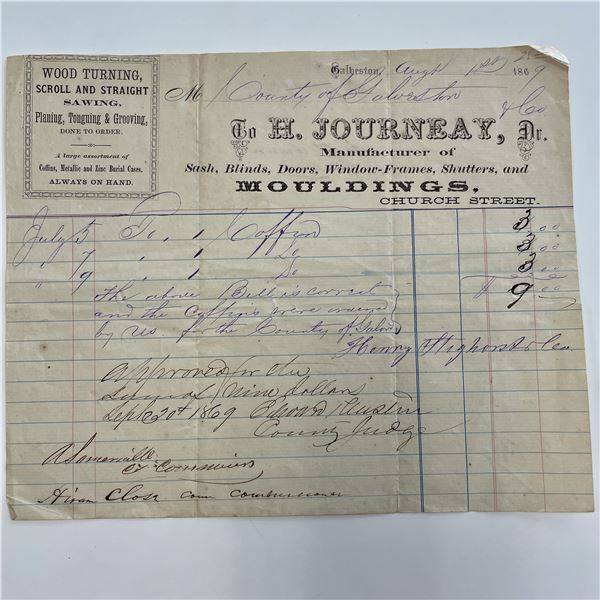 WOOD TURNING,
SCROLL AND STRAIGHT
SAWING.
Planing, Tonguing & Grooving,
DONE TO ORDER.
A large assortment of
Coffins, Metallic and Zinc Burial Cases.
ALWAYS ON HAND.
Galveston, Augt 1st 1869
M County of Galveston
& Co
To H. JOURNEAY, Dr.
Manufacturer of
Sash, Blinds, Doors, Window-Frames, Shutters, and
MOULDINGS,
CHURCH STREET.
July 5 To 1 Coffin 3.00
" 7 " 1 Do 3.00
" 9 " 1 Do 3.00
The above Bill is correct $ 9.00
and the Coffins were
by us for the County of Galv
Henry & Co
approved for the
sum of nine dollars
Sept 20th 1869 Edward
County Judge
A Somerville
Co Commiss
Hiram Close com